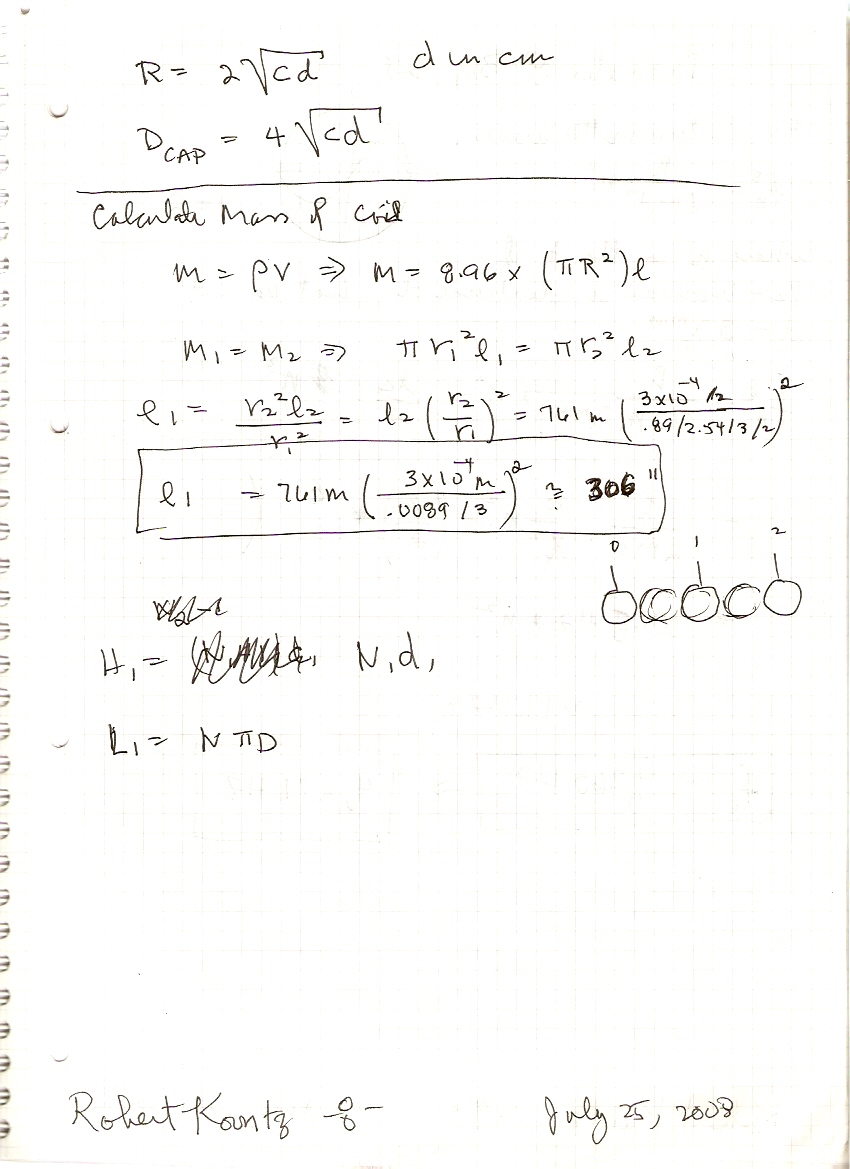 R = 2√cd d in cm
D_CAP = 4√cd
Calculate Mass of coil
m = ρV ⇒ m = 8.96 × (πR²)l
m₁ = m₂ ⇒ πr₁²l₁ = πr₂²l₂
l₁ = r₂²l₂/r₁² = l₂(r₂/r₁)² = 761 m (3×10⁻⁴/2 / .89/2.54/3/2)²
l₁ = 761m (3×10⁻⁴m / .0089/3)² ≅ 306"
0 1 2
H₁ = N₁d₁
L₁ = NπD
Robert Kountz
July 25, 2008